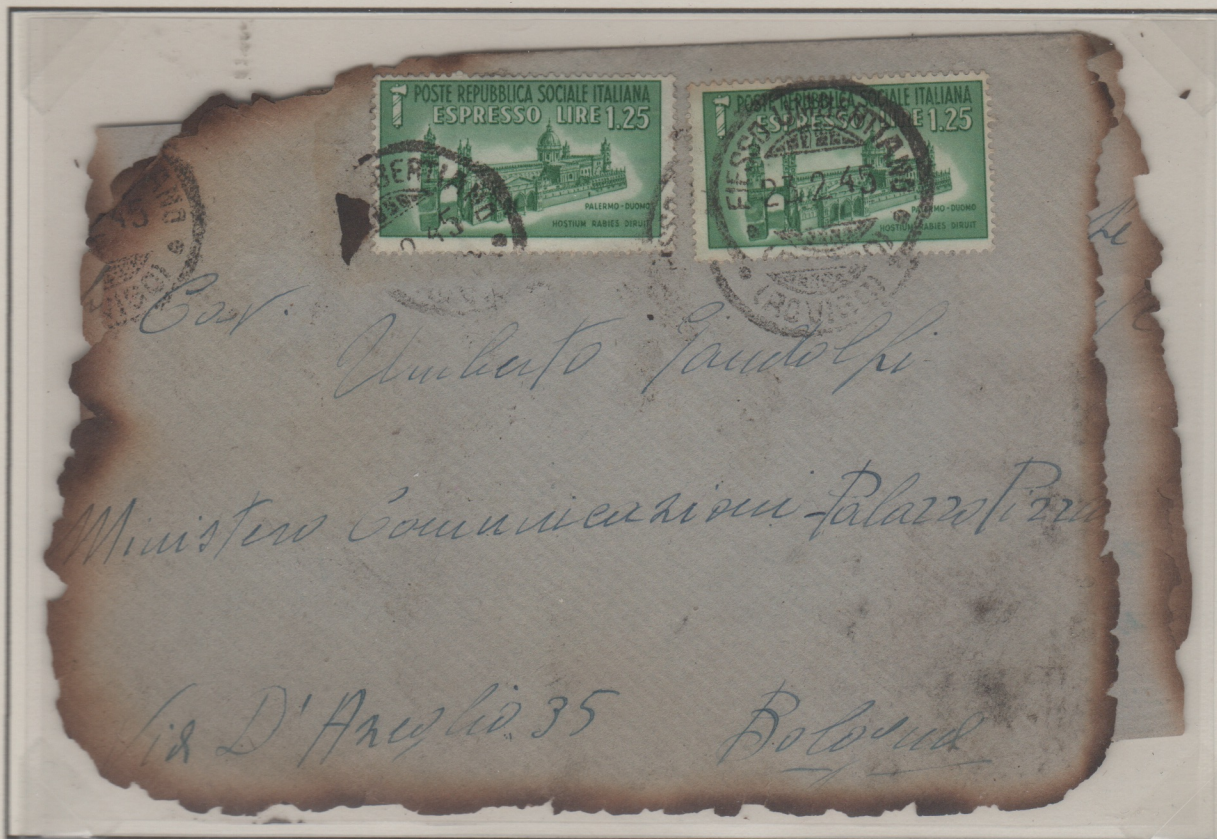 POSTE REPUBBLICA SOCIALE ITALIANA
ESPRESSO LIRE 1.25
PALERMO-DUOMO
HOSTIUM RABIES DIRUIT
POSTE REPUBBLICA SOCIALE ITALIANA
ESPRESSO LIRE 1.25
PALERMO-DUOMO
HOSTIUM RABIES DIRUIT
FIESSO UMBERTIANO
2.45
(ROVIGO)
BERTIANO
2.45
Cav. Umberto Gandolfi
Ministero Comunicazioni Palazzo
Via D'Azeglio 35 Bologna